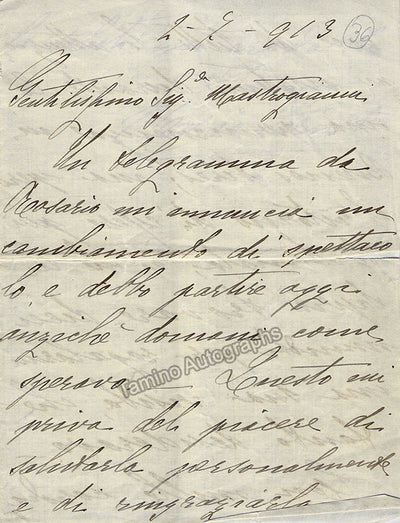 2-7-913 36
Gentilissimo Sig.r Mastrogianni
Un telegramma da
Rosario mi annuncia un
cambiamento di spettaco
lo, e debbo partire oggi
anzichè domani come
speravo — Questo mi
priva del piacere di
salutarla personalmente
e di ringraziarla
Tamino Autographs